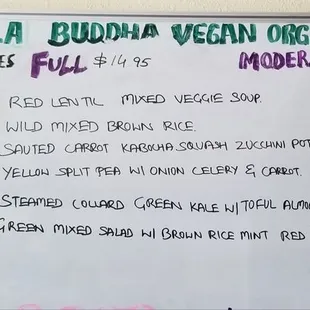 LA BUDDHA VEGAN ORG
ES FULL $14.95 MODER
RED LENTIL MIXED VEGGIE SOUP.
WILD MIXED BROWN RICE.
SAUTED CARROT KABOCHA SQUASH ZUCCHINI POT
YELLOW SPLIT PEA W/ ONION CELERY & CARROT.
STEAMED COLLARD GREEN KALE W/ TOFUL ALMO
GREEN MIXED SALAD W/ BROWN RICE MINT RED